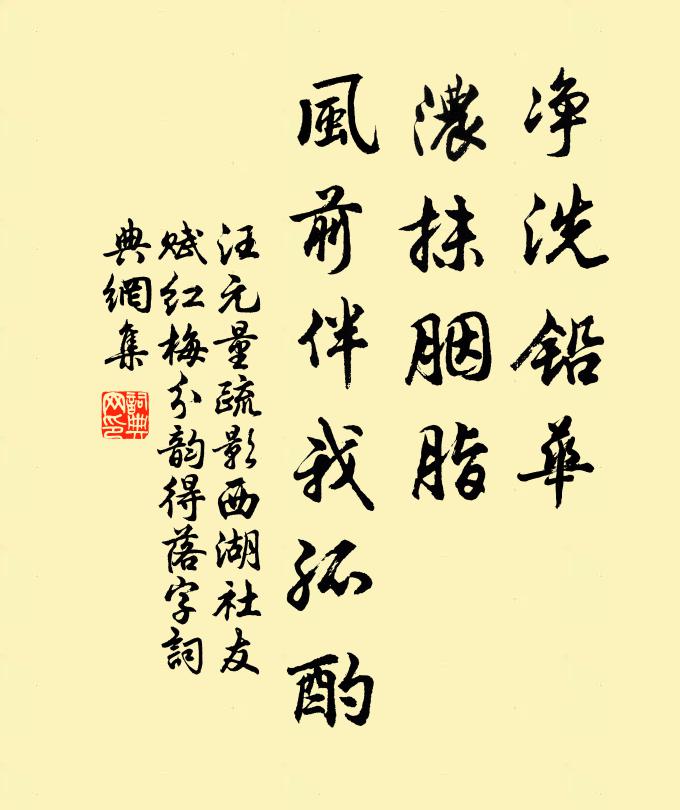 净洗鉛華
濃抹胭脂
風前伴我孤酌
汪元量疏影西湖社友
赋红梅分韵得落字詞
典網集
詞典網印